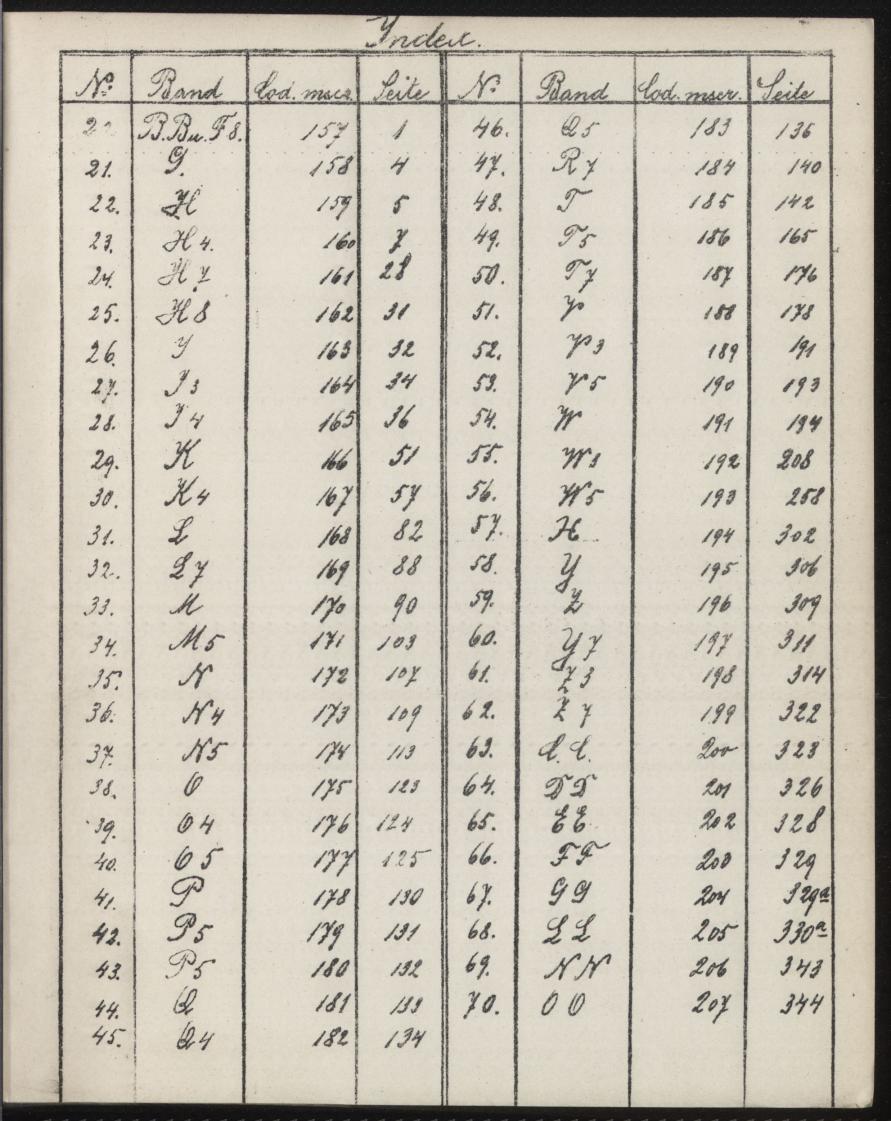 Index.
No. Band Cod. mscr. Seite No. Band Cod. mscr. Seite
B.Bu.F8. 157 1 46. Q5 183 136
21. G. 158 4 47. R7 184 140
22. H 159 5 48. T 185 142
23. H4. 160 7 49. T5 186 165
24. H7 161 28 50. T7 187 176
25. H8 162 31 51. V 188 178
26. J 163 32 52. V3 189 191
27. J3 164 34 53. V5 190 193
28. J4 165 36 54. W 191 194
29. K 166 51 55. W3 192 208
30. K4 167 57 56. W5 193 258
31. L 168 82 57. 194 302
32. L7 169 88 58. Y 195 306
33. M 170 90 59. Z 196 309
34. M5 171 103 60. Y7 197 311
35. N 172 107 61. Z3 198 314
36. N4 173 109 62. Z7 199 322
37. N5 174 113 63. C.C. 200 323
38. O 175 123 64. DD 201 326
39. O4 176 124 65. EE 202 328
40. O5 177 125 66. FF 203 329
41. P 178 130 67. GG 204 329a
42. P5 179 131 68. LL 205 330a
43. P5 180 132 69. NN 206 343
44. Q 181 133 70. OO 207 344
45. Q4 182 134